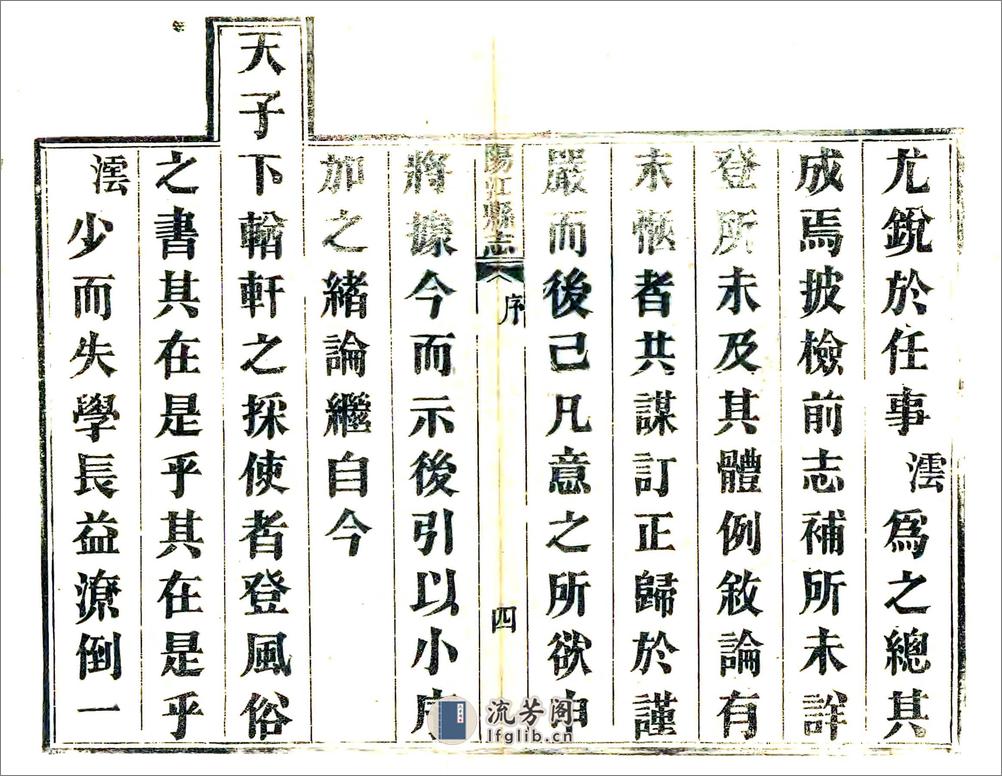 尤銳於任事澐爲之總其
成焉披檢前志補所未詳
登所未及其體例敘論有
未愜者共謀訂正歸於謹
嚴而後己凡意之所欲申
陽江縣志 序 四
將據今而示後引以小序
加之緒論繼自今
天子下輶軒之採使者登風俗
之書其在是乎其在是乎
澐少而失學長益潦倒一
流芳阁
lfglib.cn